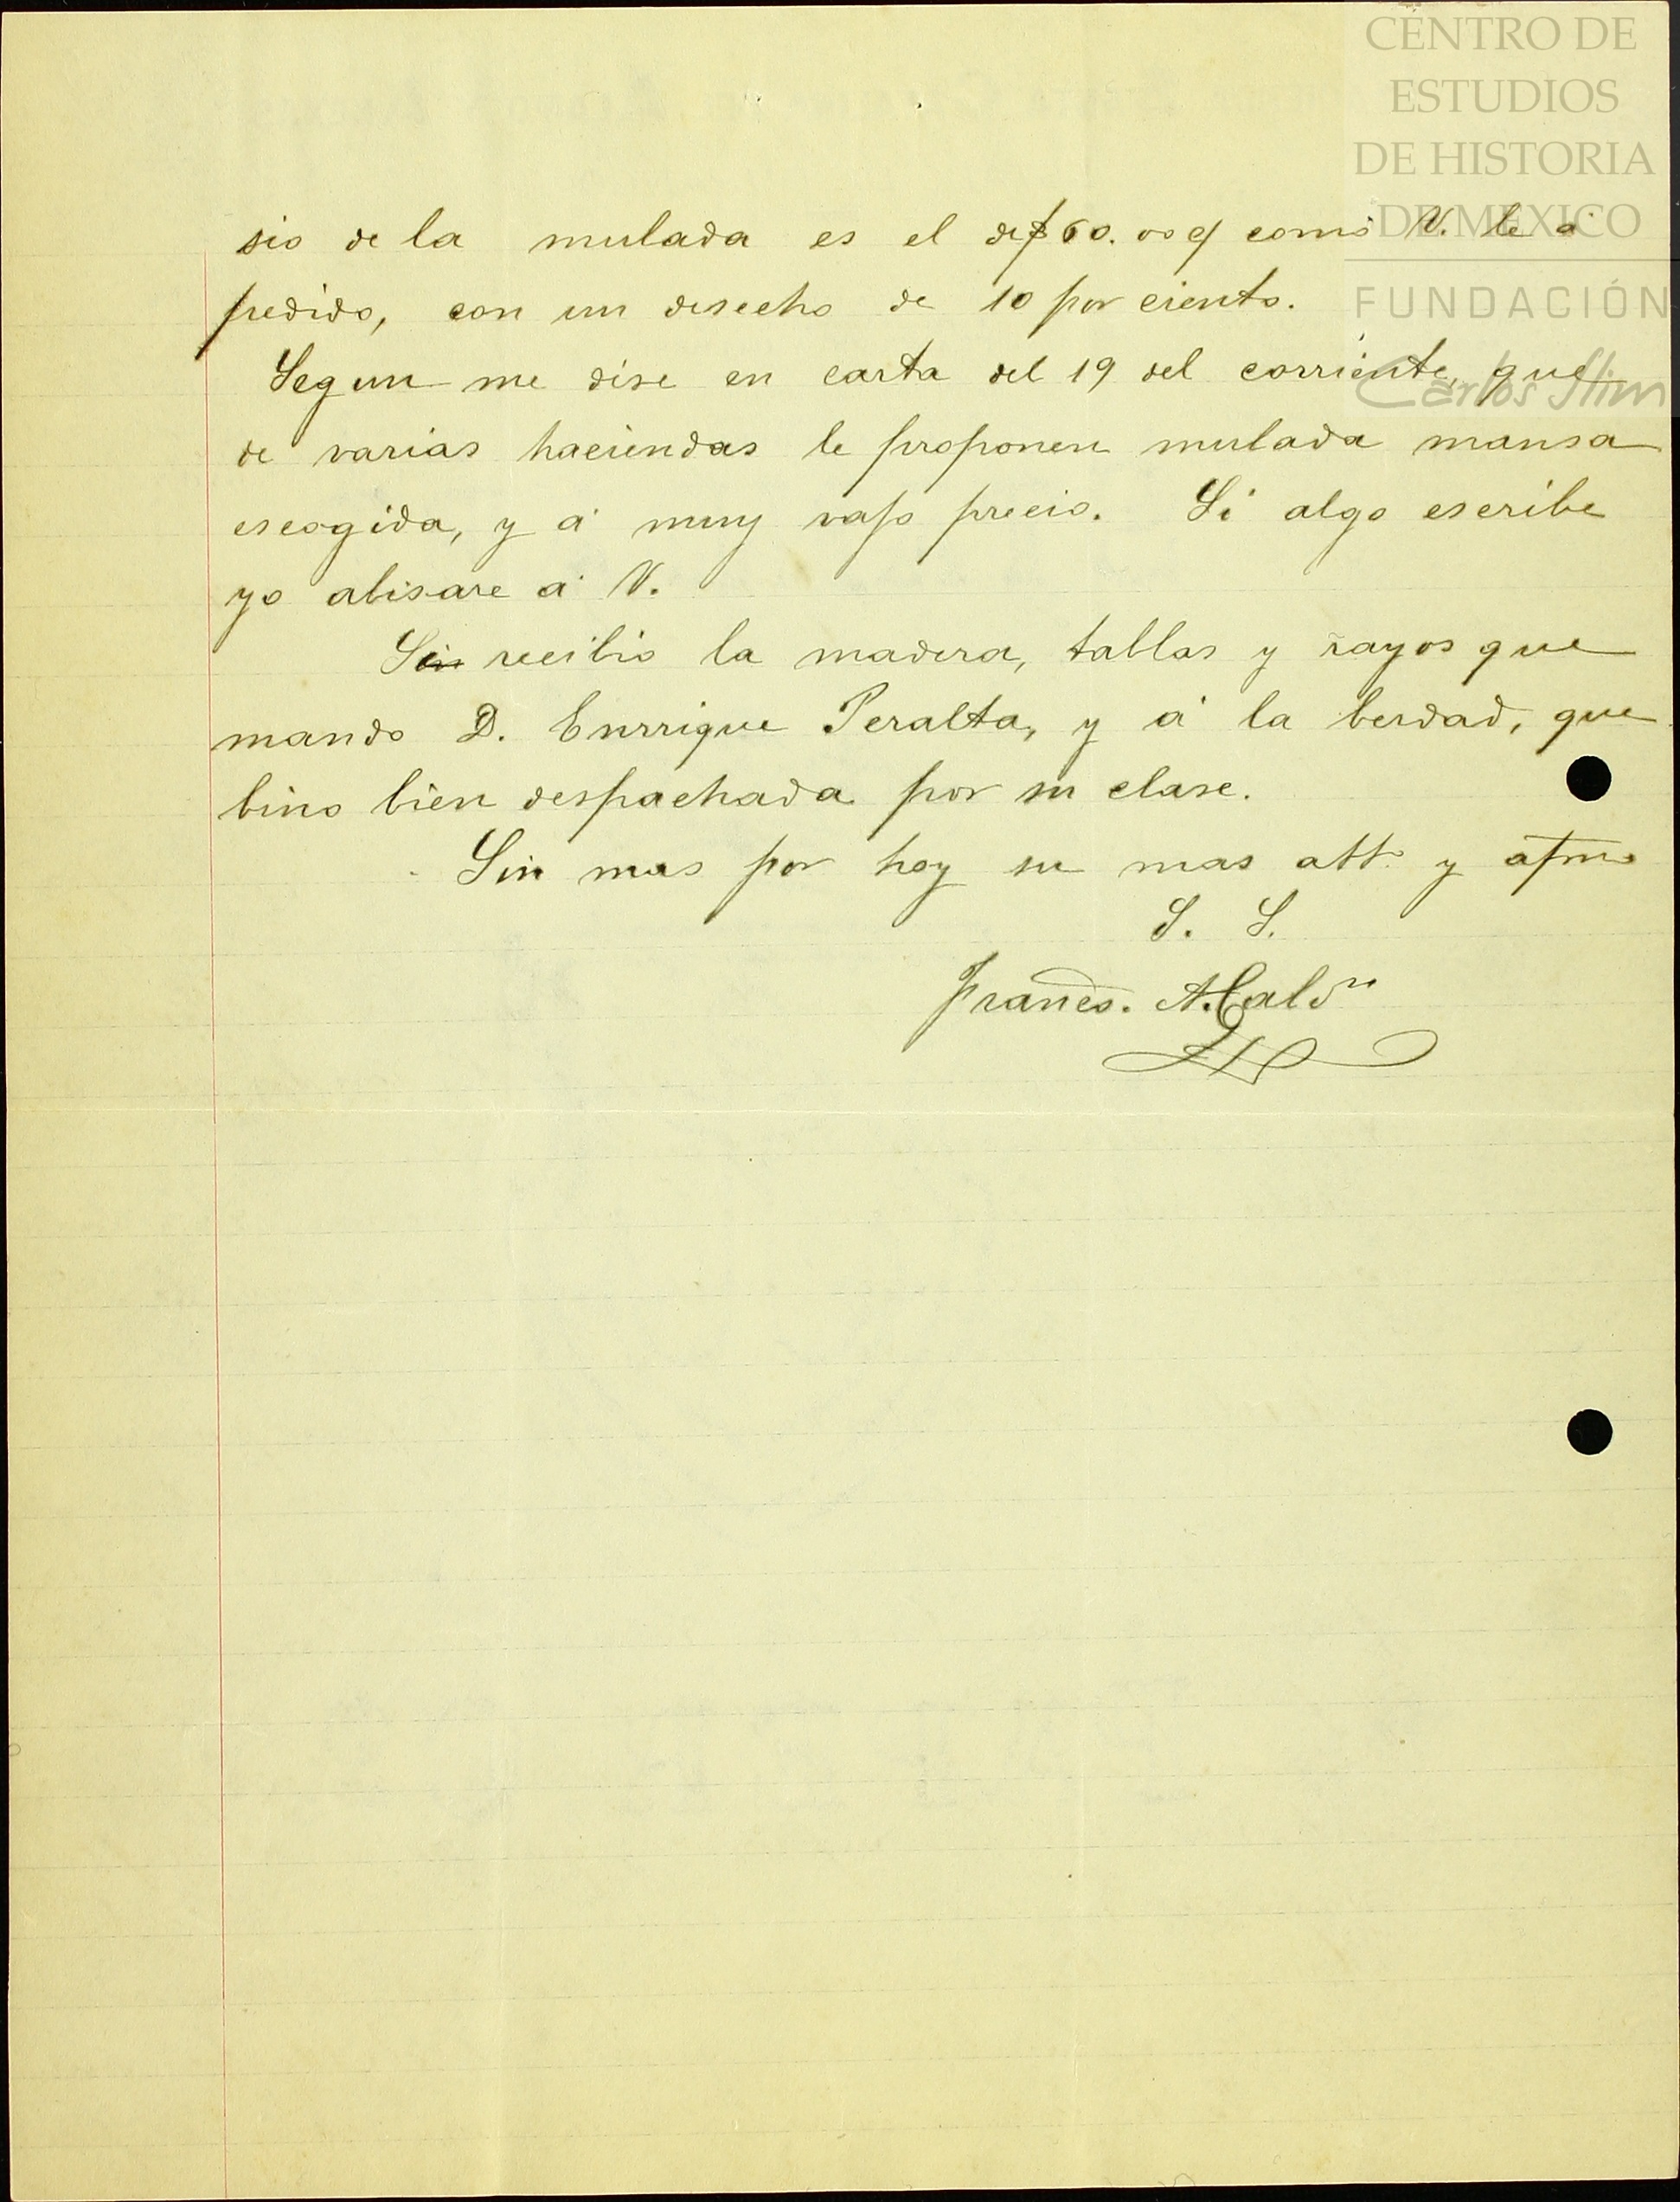 CENTRO DE
ESTUDIOS
DE HISTORIA
DE MEXICO
FUNDACIÓN
Carlos Slim
sio de la mulada es el de $60.00 c/ como V. le á
pedido, con un desecho de 10 por ciento.
Segun me dise en carta del 19 del corriente, que
de varias haciendas le proponen mulada mansa
escogida, y á muy vajo precio. Si algo escribe
yo abisare á V.
Se recibio la madera, tablas y rayos que
mando D. Enrrique Peralta, y á la berdad, que
bino bien despachada por su clase.
Sin mas por hoy su mas atto y afmo
S. S.
Franco. A. Caldn